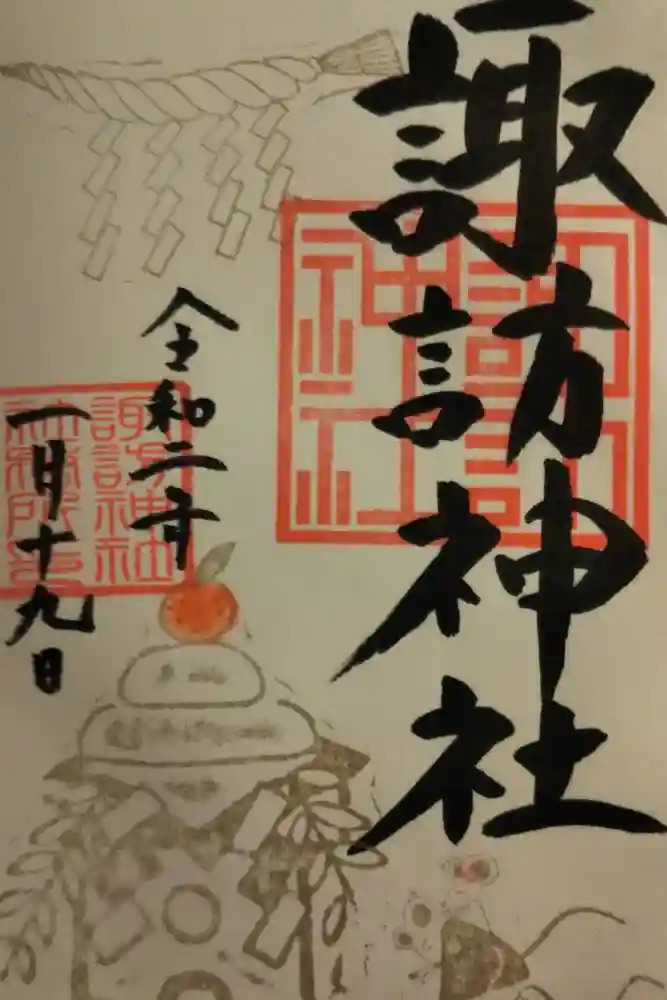 諏訪神社
令和二年
一月十九日
諏訪
神社
諏訪神社
社務所印